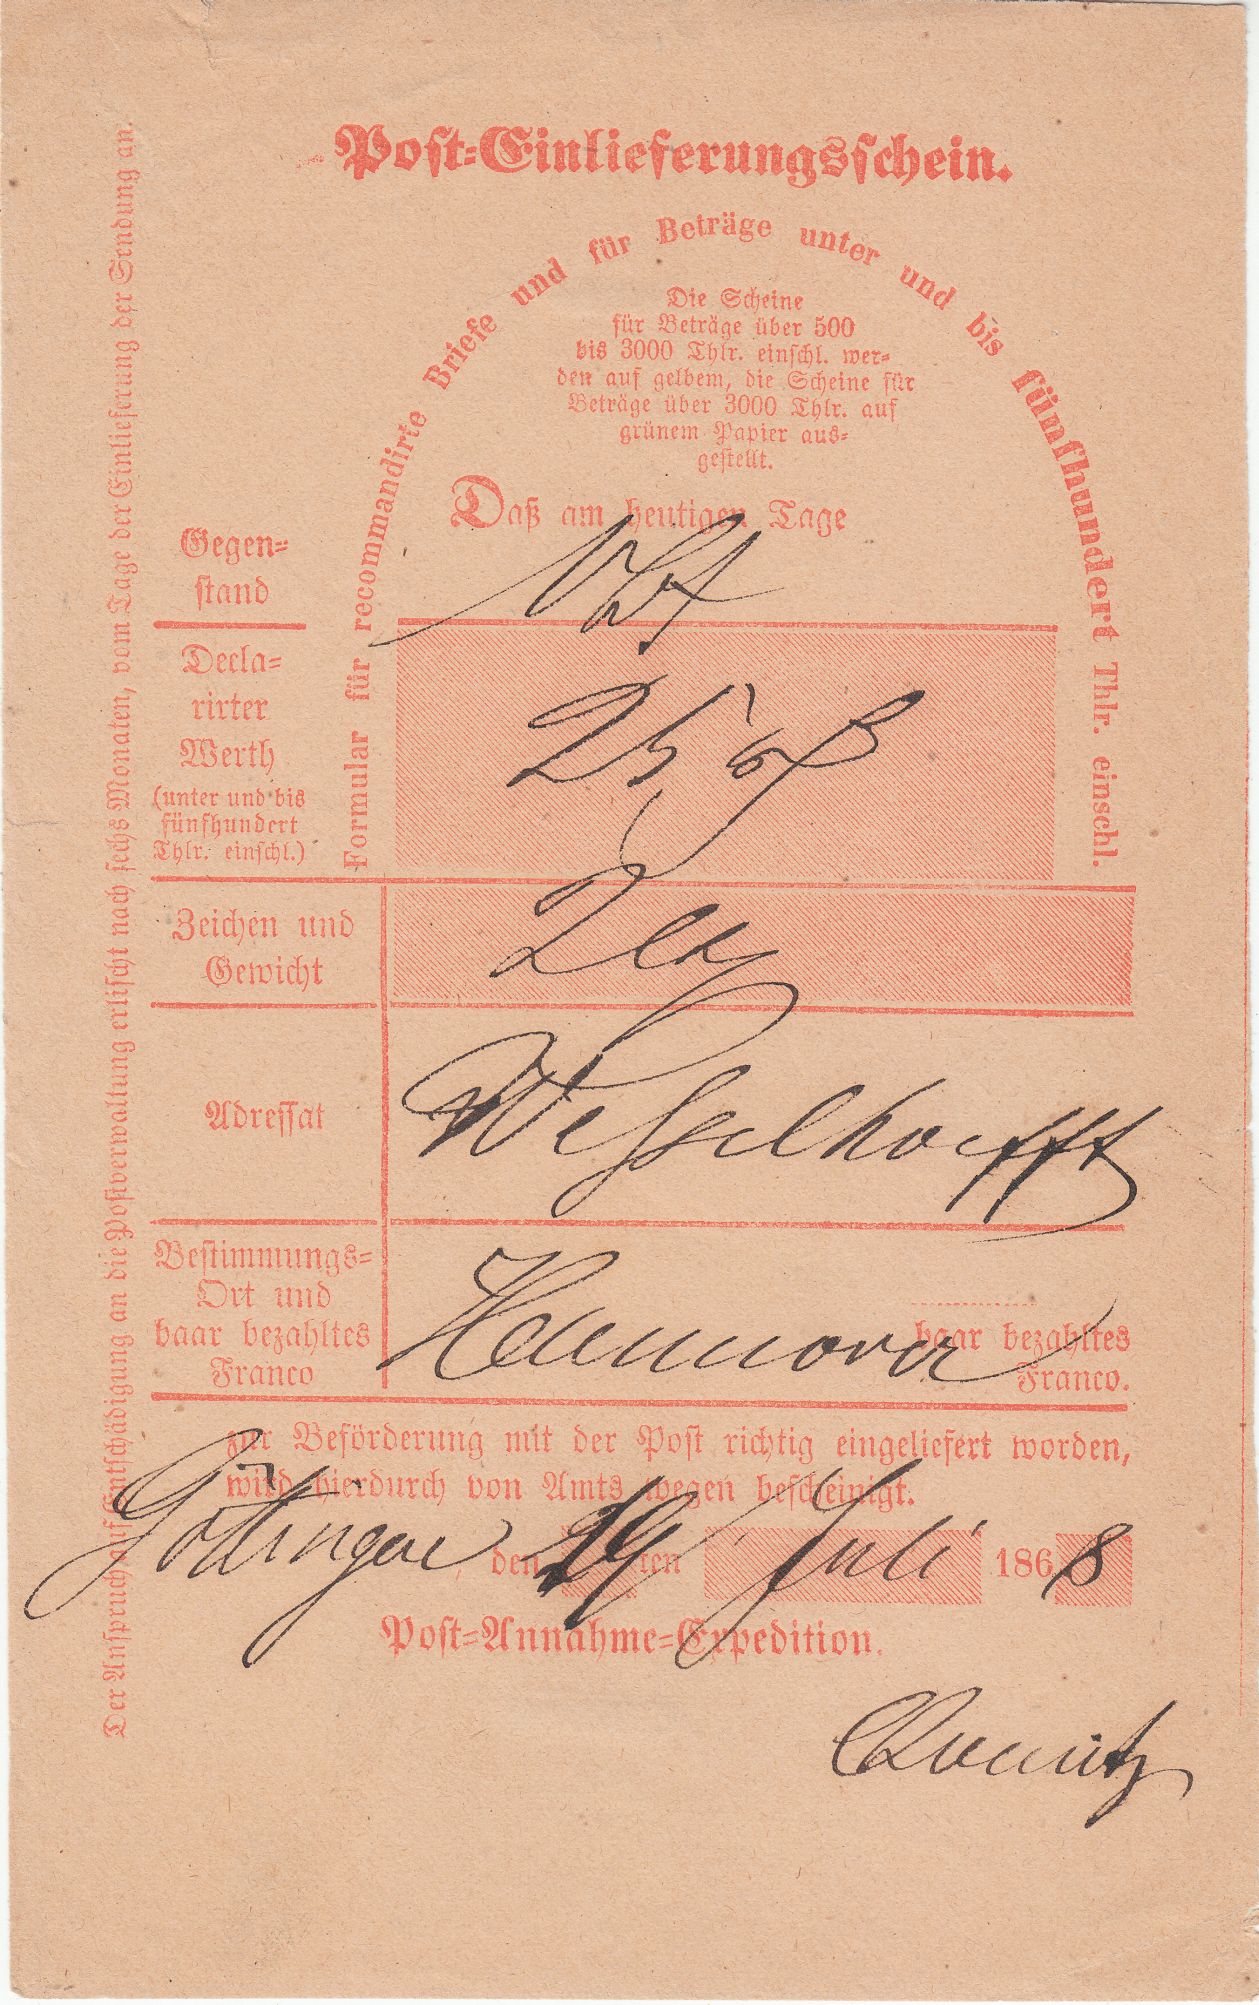 Post-Einlieferungsschein.
Formular für recommandirte Briefe und für Beträge unter und bis fünfhundert Thlr. einschl.
Die Scheine
für Beträge über 500
bis 3000 Thlr. einschl. wer-
den auf gelbem, die Scheine für
Beträge über 3000 Thlr. auf
grünem Papier aus-
gestellt.
Daß am heutigen Tage
Gegen-
stand
Decla-
rirter
Werth
(unter und bis
fünfhundert
Thlr. einschl.)
25
Zeichen und
Gewicht
Adressat
Wesselhoefft
Bestimmungs-
Ort und
baar bezahltes
Franco
Hannover
baar bezahltes
Franco.
zur Beförderung mit der Post richtig eingeliefert worden,
wird hierdurch von Amts wegen bescheinigt.
Göttingen, den 19ten Juli 1868
Post-Annahme-Expedition.
Der Anspruch auf Entschädigung an die Postverwaltung erlischt nach sechs Monaten, vom Tage der Einlieferung der Sendung an.